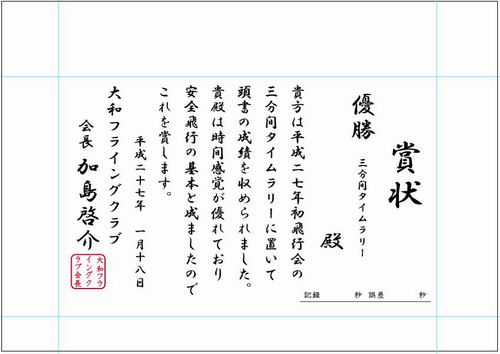 賞状
優勝
三分間タイムラリー
殿
記録 秒 誤差 秒
貴方は平成二七年初飛行会の
三分間タイムラリーに置いて
頭書の成績を収められました。
貴殿は時間感覚が優れており
安全飛行の基本と成ましたので
これを賞します。
平成二十七年 一月十八日
大和フライングクラブ
会長 加島啓介
大和フラ
イングク
ラブ会長